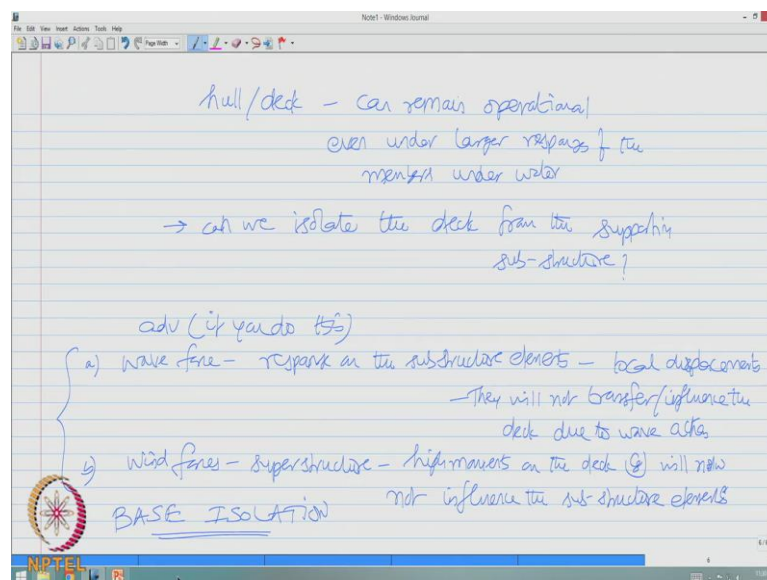 Note1 - Windows Journal
File Edit View Insert Actions Tools Help
Page Width
hull/deck - can remain operational
even under larger response of the
members under water
→ can we isolate the deck from the supporting
sub-structure?
adv (if you do this)
a) wave force - response on the substructure elements - local displacements
- They will not transfer/influence the
deck due to wave action
b) wind forces - superstructure - high moments on the deck will now
not influence the sub-structure elements
BASE ISOLATION
NPTEL